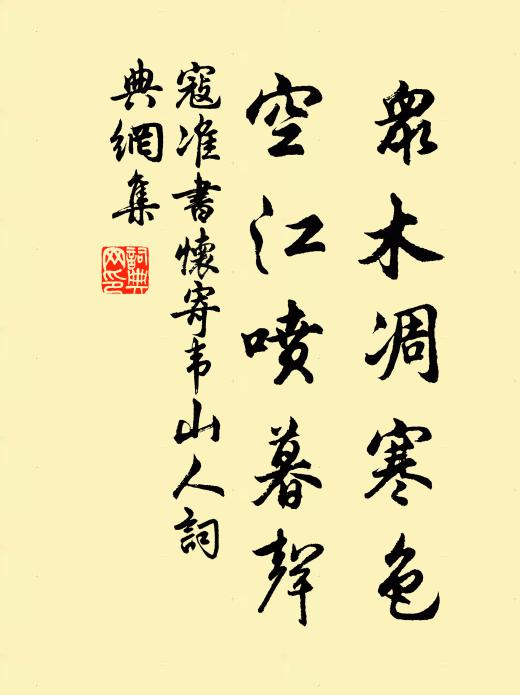 衆木凋寒色
空江噴暮聲
寇准書懷寄韦山人詞
典網集
詞典
网印